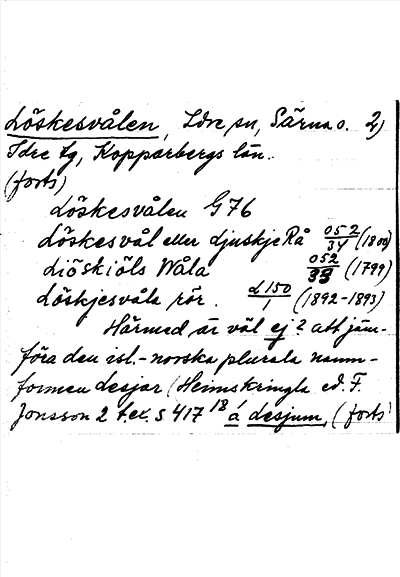 Löskesvålen, Idre sn, Särna o. 2)
Idre tg, Kopparbergs län.
(forts)
Löskesvålen G76
Löskesvål eller djuskje Rå 052/34 (1800)
Liöskiöls Wåla 052/33 (1799)
Löskjesvåla rör. L150/1 (1892-1893)
Härmed är väl ej? att jäm-
föra den isl.-norska plurala namn-
formen Lesjar (Heimskringla ed. F.
Jonsson 2 t.ex. s 417 18 á Lesjum, (forts)